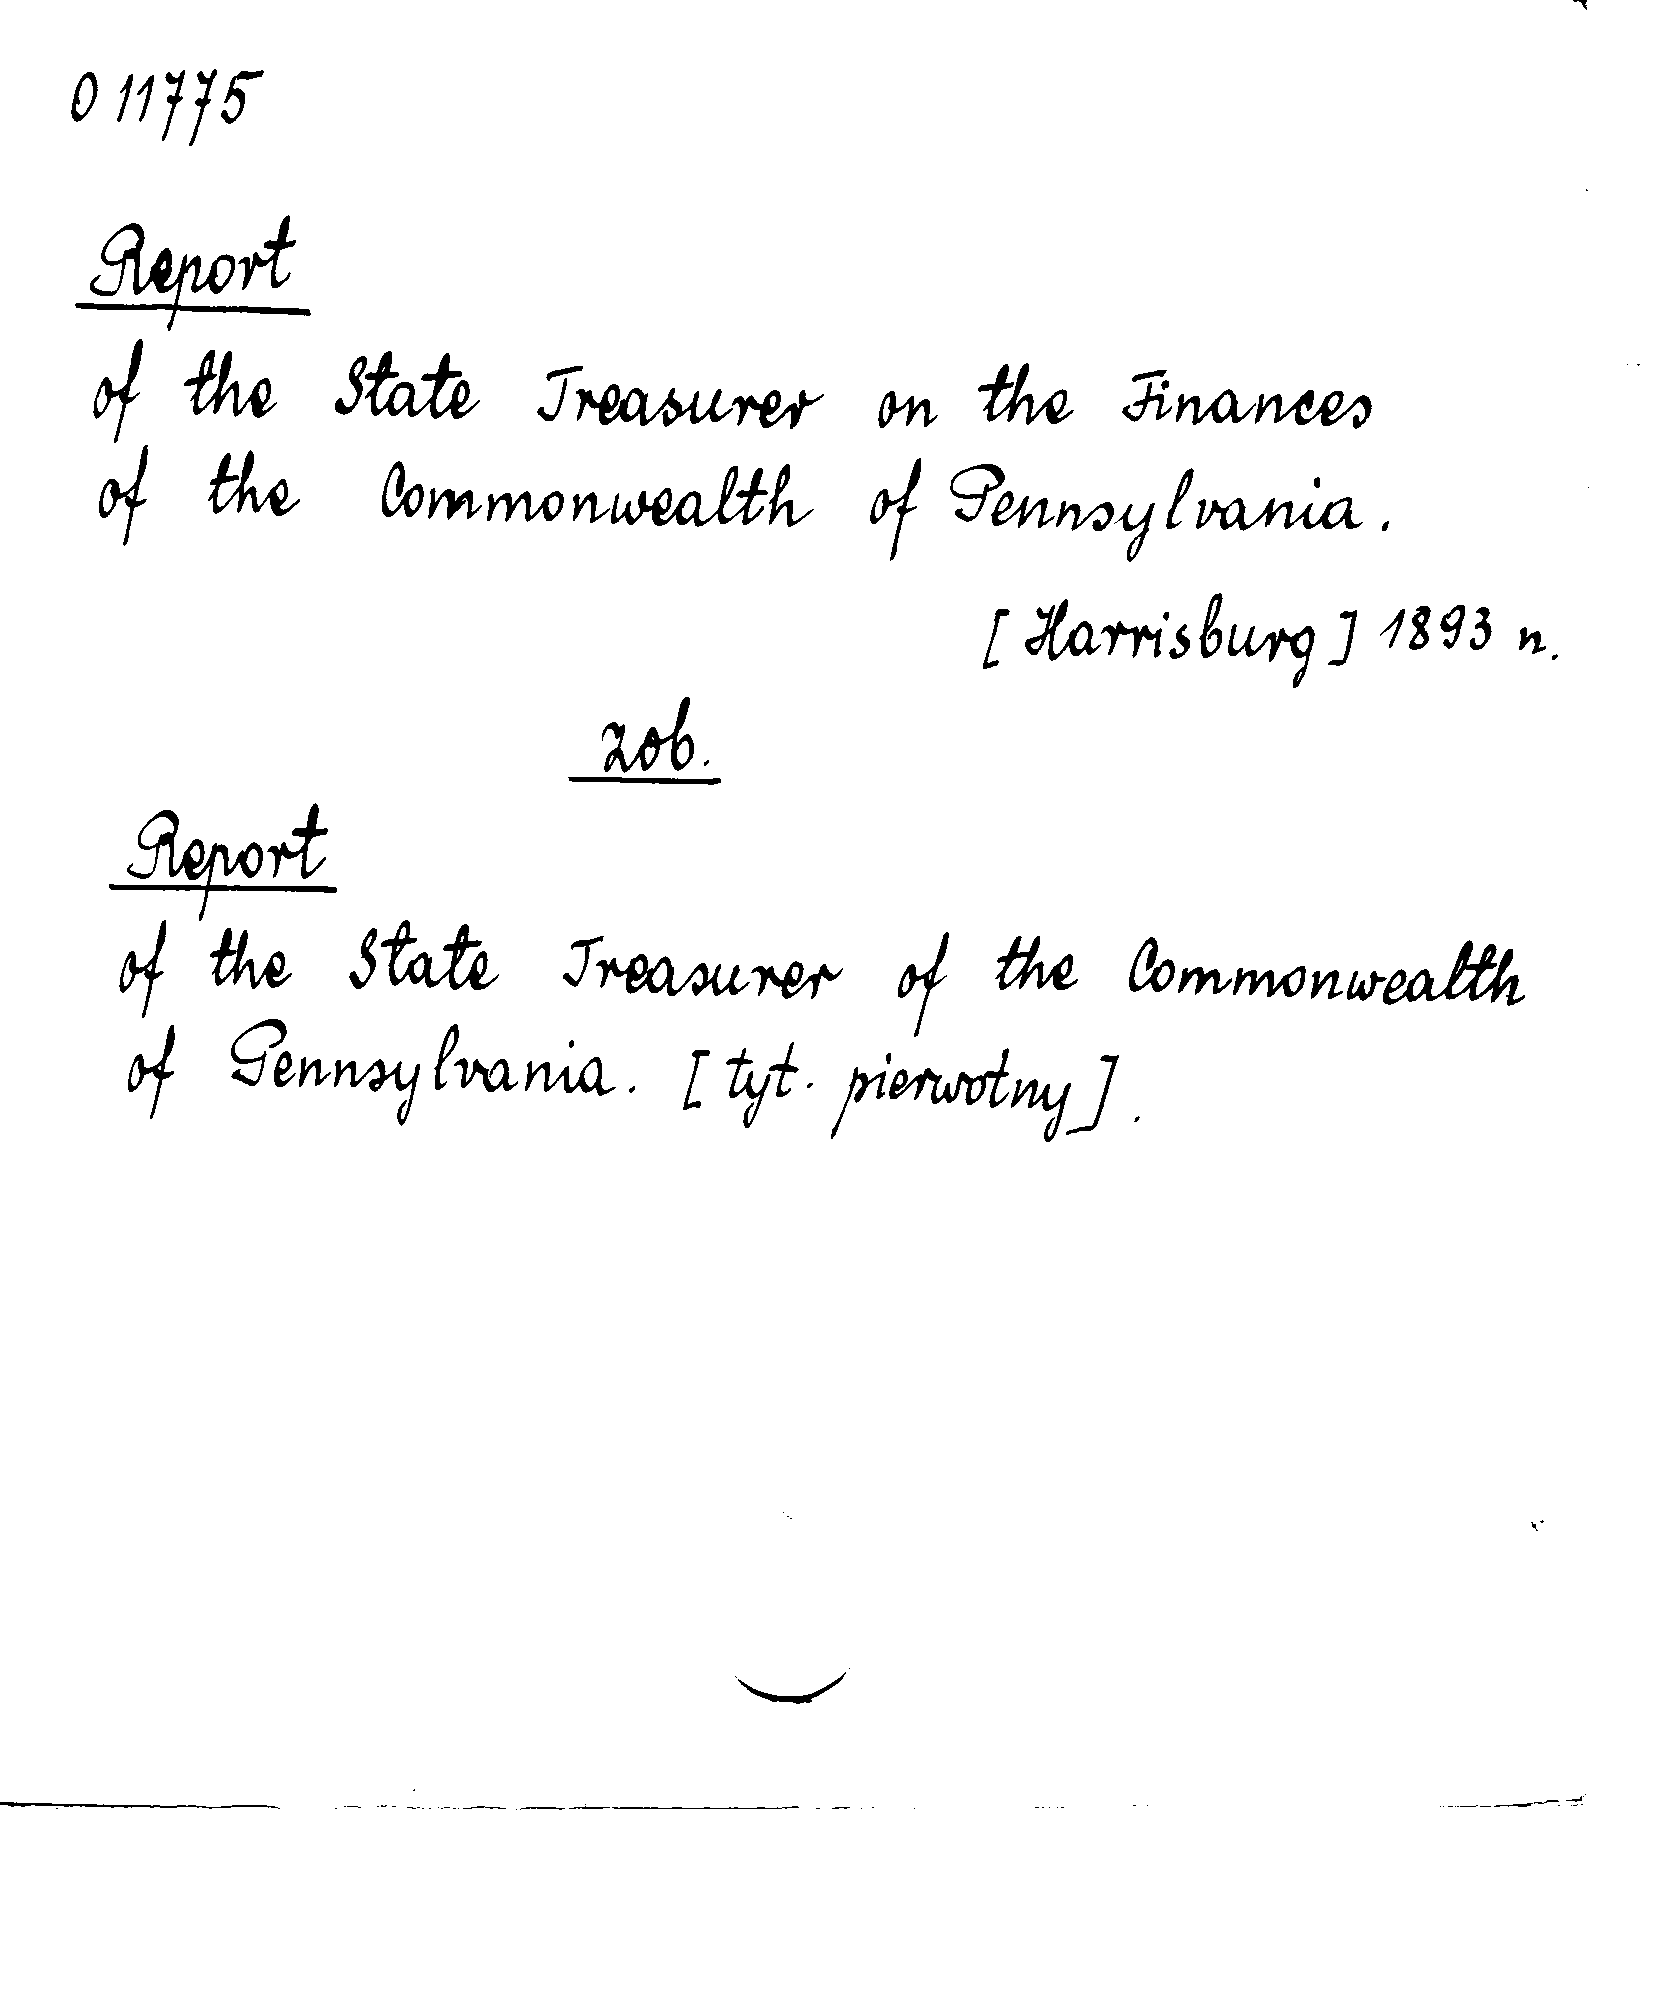 O 11775
Report
of the State Treasurer on the Finances
of the Commonwealth of Pennsylvania.
[Harrisburg] 1893 n.
zob.
Report
of the State Treasurer of the Commonwealth
of Pennsylvania. [tyt. pierwotny].